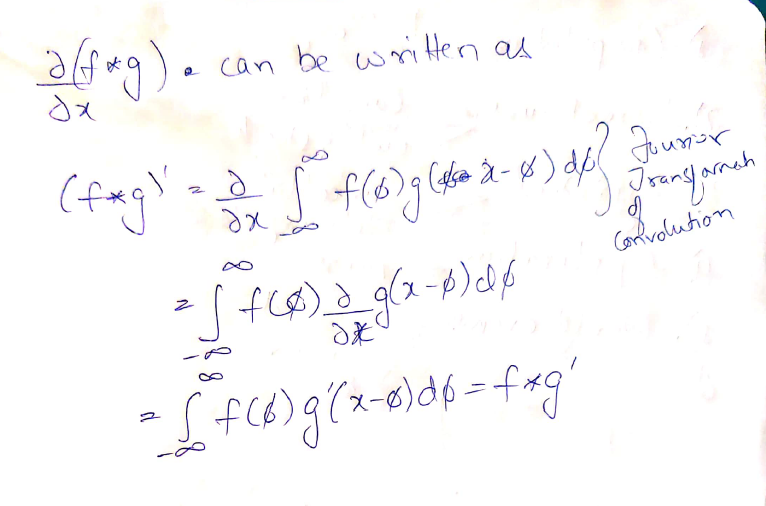 ∂(f*g)/∂x . can be written as
(f*g)' = ∂/∂x ∫_{-∞}^{∞} f(ϕ)g(x-ϕ)dϕ } Fourier
Transformation
of
Convolution
= ∫_{-∞}^{∞} f(ϕ) ∂/∂x g(x-ϕ)dϕ
= ∫_{-∞}^{∞} f(ϕ)g'(x-ϕ)dϕ = f*g'